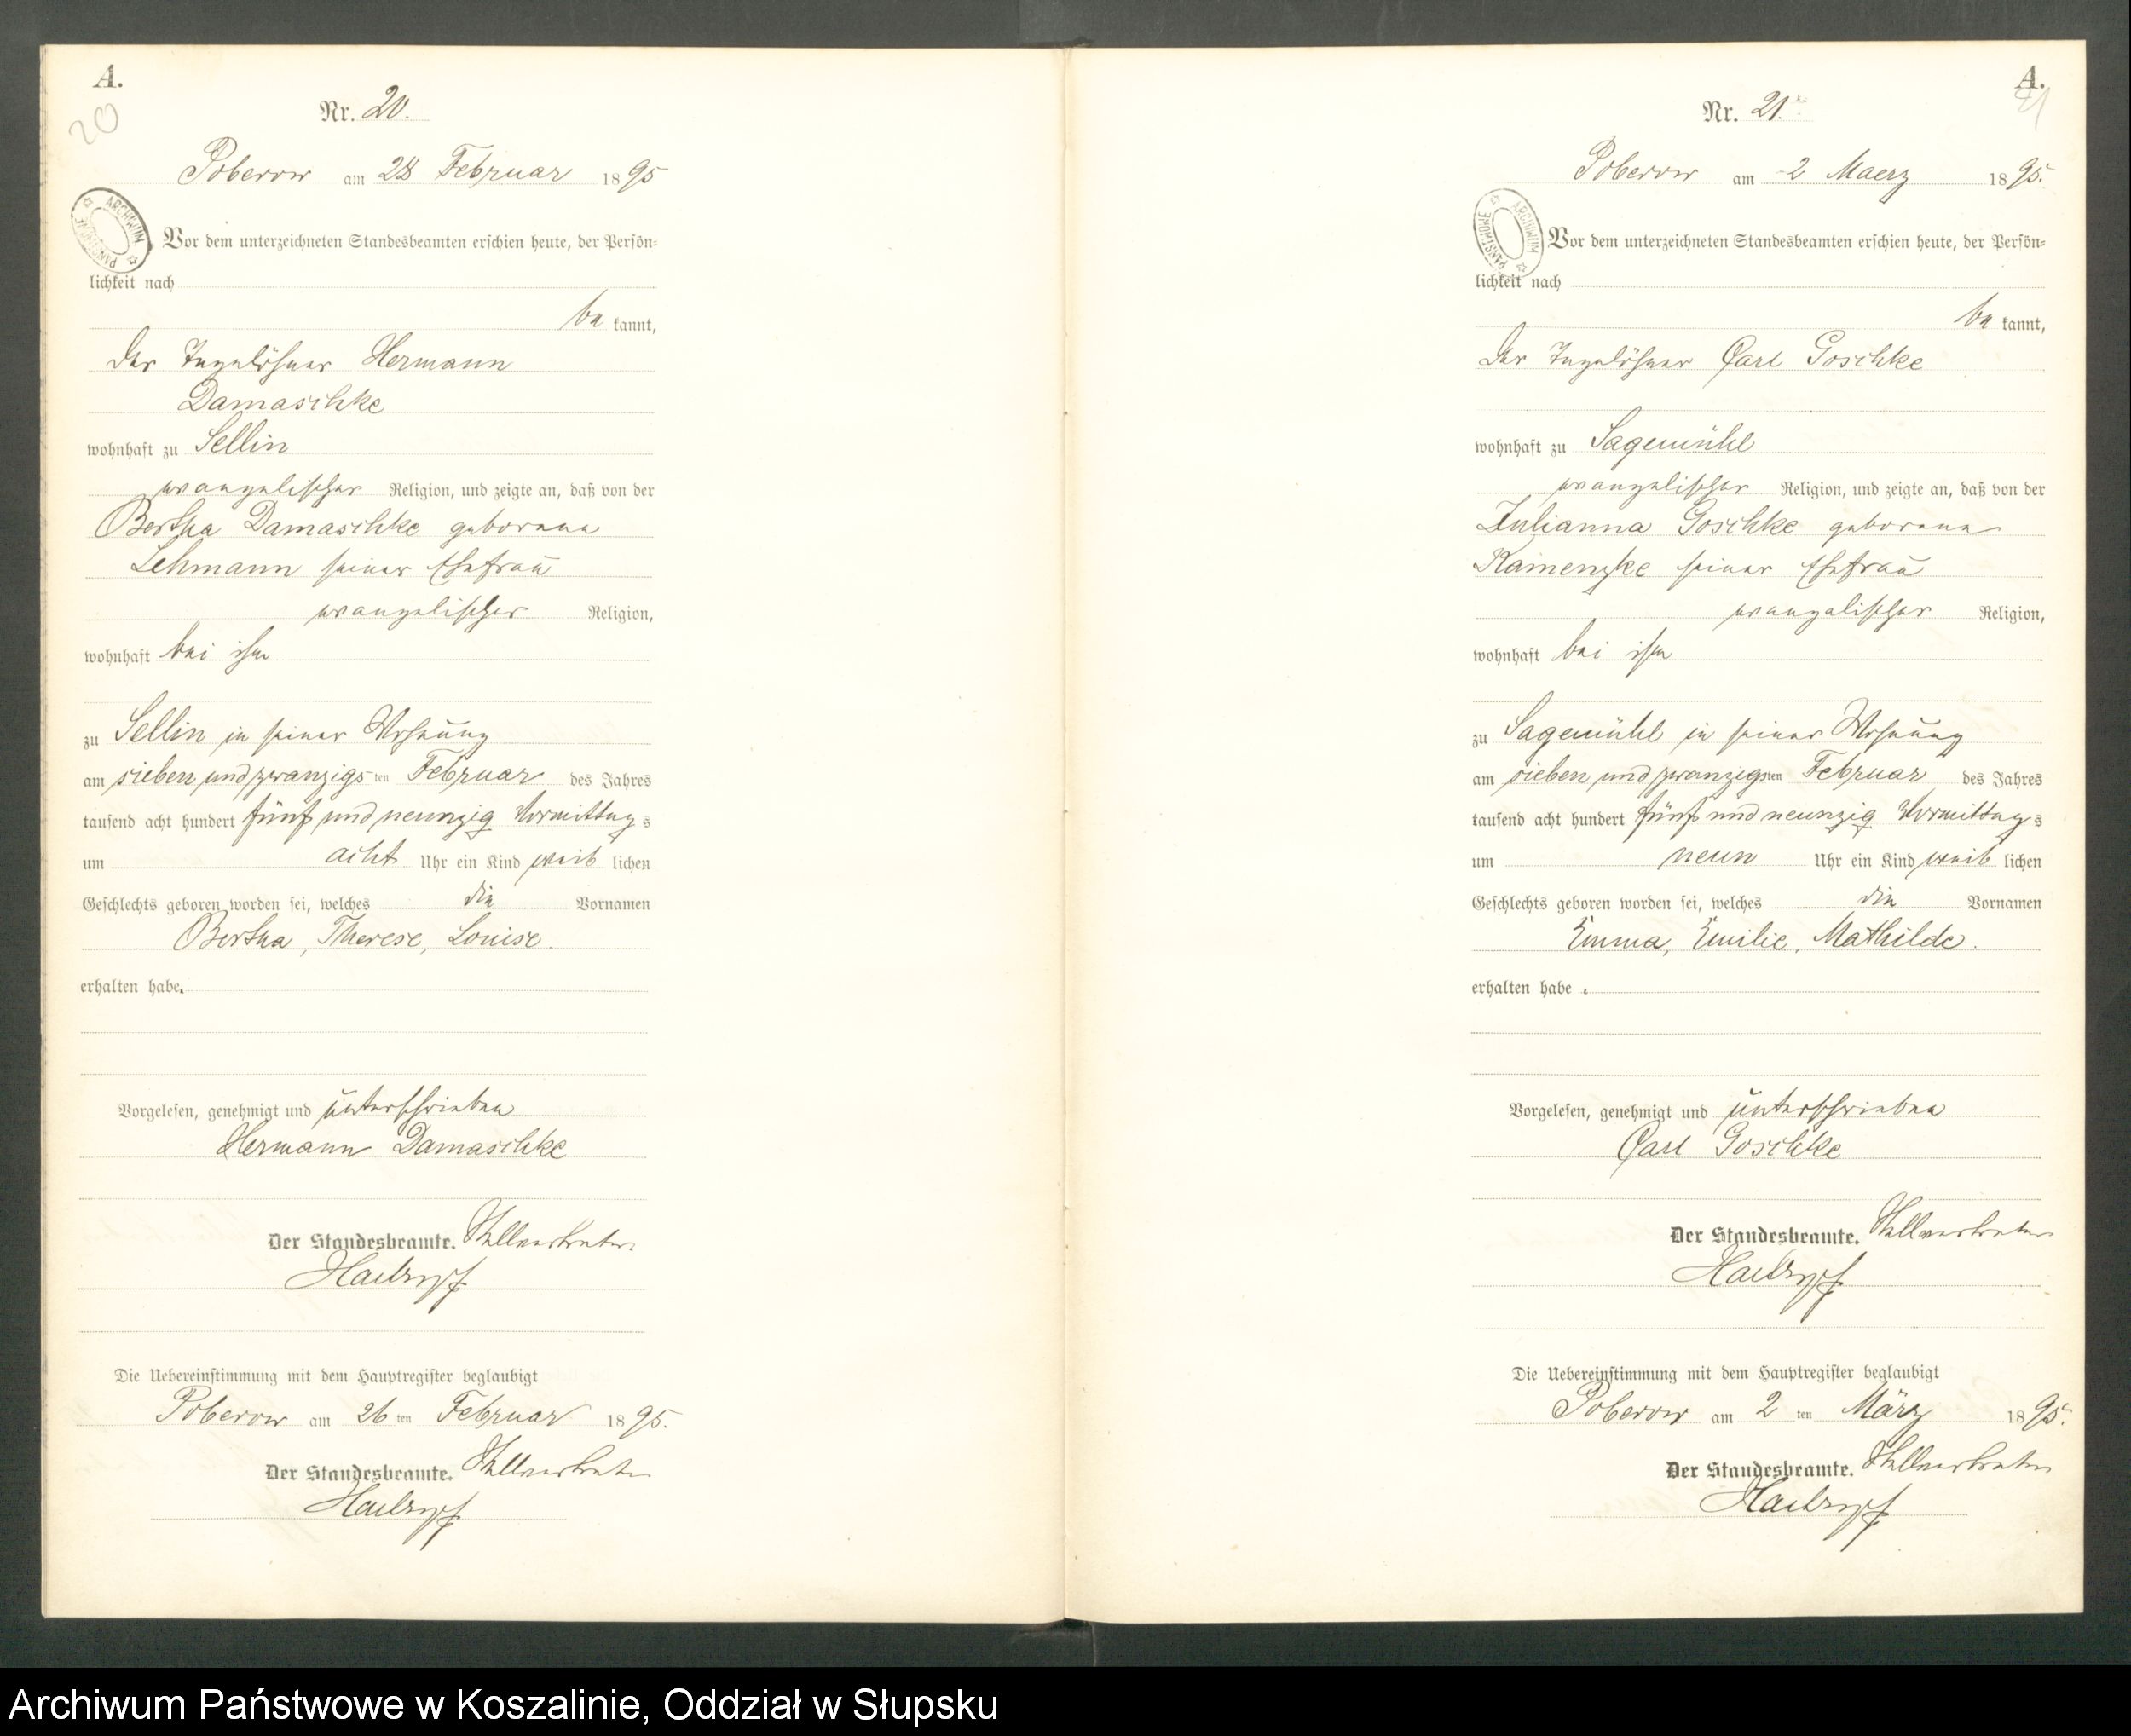 A.
20
Nr. 20.
Poberow am 28 Februar 1895
ARCHIWUM PAŃSTWOWE
Vor dem unterzeichneten Standesbeamten erschien heute, der Persön=
lichkeit nach
be kannt,
der Tagelöhner Hermann
Damaschke
wohnhaft zu Sellin
evangelischer Religion, und zeigte an, daß von der
Bertha Damaschke geborene
Lehmann seiner Ehefrau
evangelischer Religion,
wohnhaft bei ihm
zu Sellin in seiner Wohnung
am sieben und zwanzigs ten Februar des Jahres
tausend acht hundert fünf und neunzig Vormittag s
um acht Uhr ein Kind weib lichen
Geschlechts geboren worden sei, welches die Vornamen
Bertha, Therese, Louise.
erhalten habe.
Vorgelesen, genehmigt und unterschrieben
Hermann Damaschke
Der Standesbeamte. Stellvertreter
Die Uebereinstimmung mit dem Hauptregister beglaubigt
Poberow am 26 ten Februar 1895.
Der Standesbeamte. Stellvertreter
A.
21
Nr. 21.
Poberow am 2 Maerz 1895.
ARCHIWUM PAŃSTWOWE
Vor dem unterzeichneten Standesbeamten erschien heute, der Persön=
lichkeit nach
be kannt,
der Tagelöhner Carl Goschke
wohnhaft zu Sagemühl
evangelischer Religion, und zeigte an, daß von der
Julianna Goschke geborene
Kamenzke seiner Ehefrau
evangelischer Religion,
wohnhaft bei ihm
zu Sagemühl in seiner Wohnung
am sieben und zwanzigsten Februar des Jahres
tausend acht hundert fünf und neunzig Vormittag s
um neun Uhr ein Kind weib lichen
Geschlechts geboren worden sei, welches die Vornamen
Emma, Emilie, Mathilde.
erhalten habe .
Vorgelesen, genehmigt und unterschrieben
Carl Goschke
Der Standesbeamte. Stellvertreter
Die Uebereinstimmung mit dem Hauptregister beglaubigt
Poberow am 2 ten März 1895.
Der Standesbeamte. Stellvertreter
Archiwum Państwowe w Koszalinie, Oddział w Słupsku